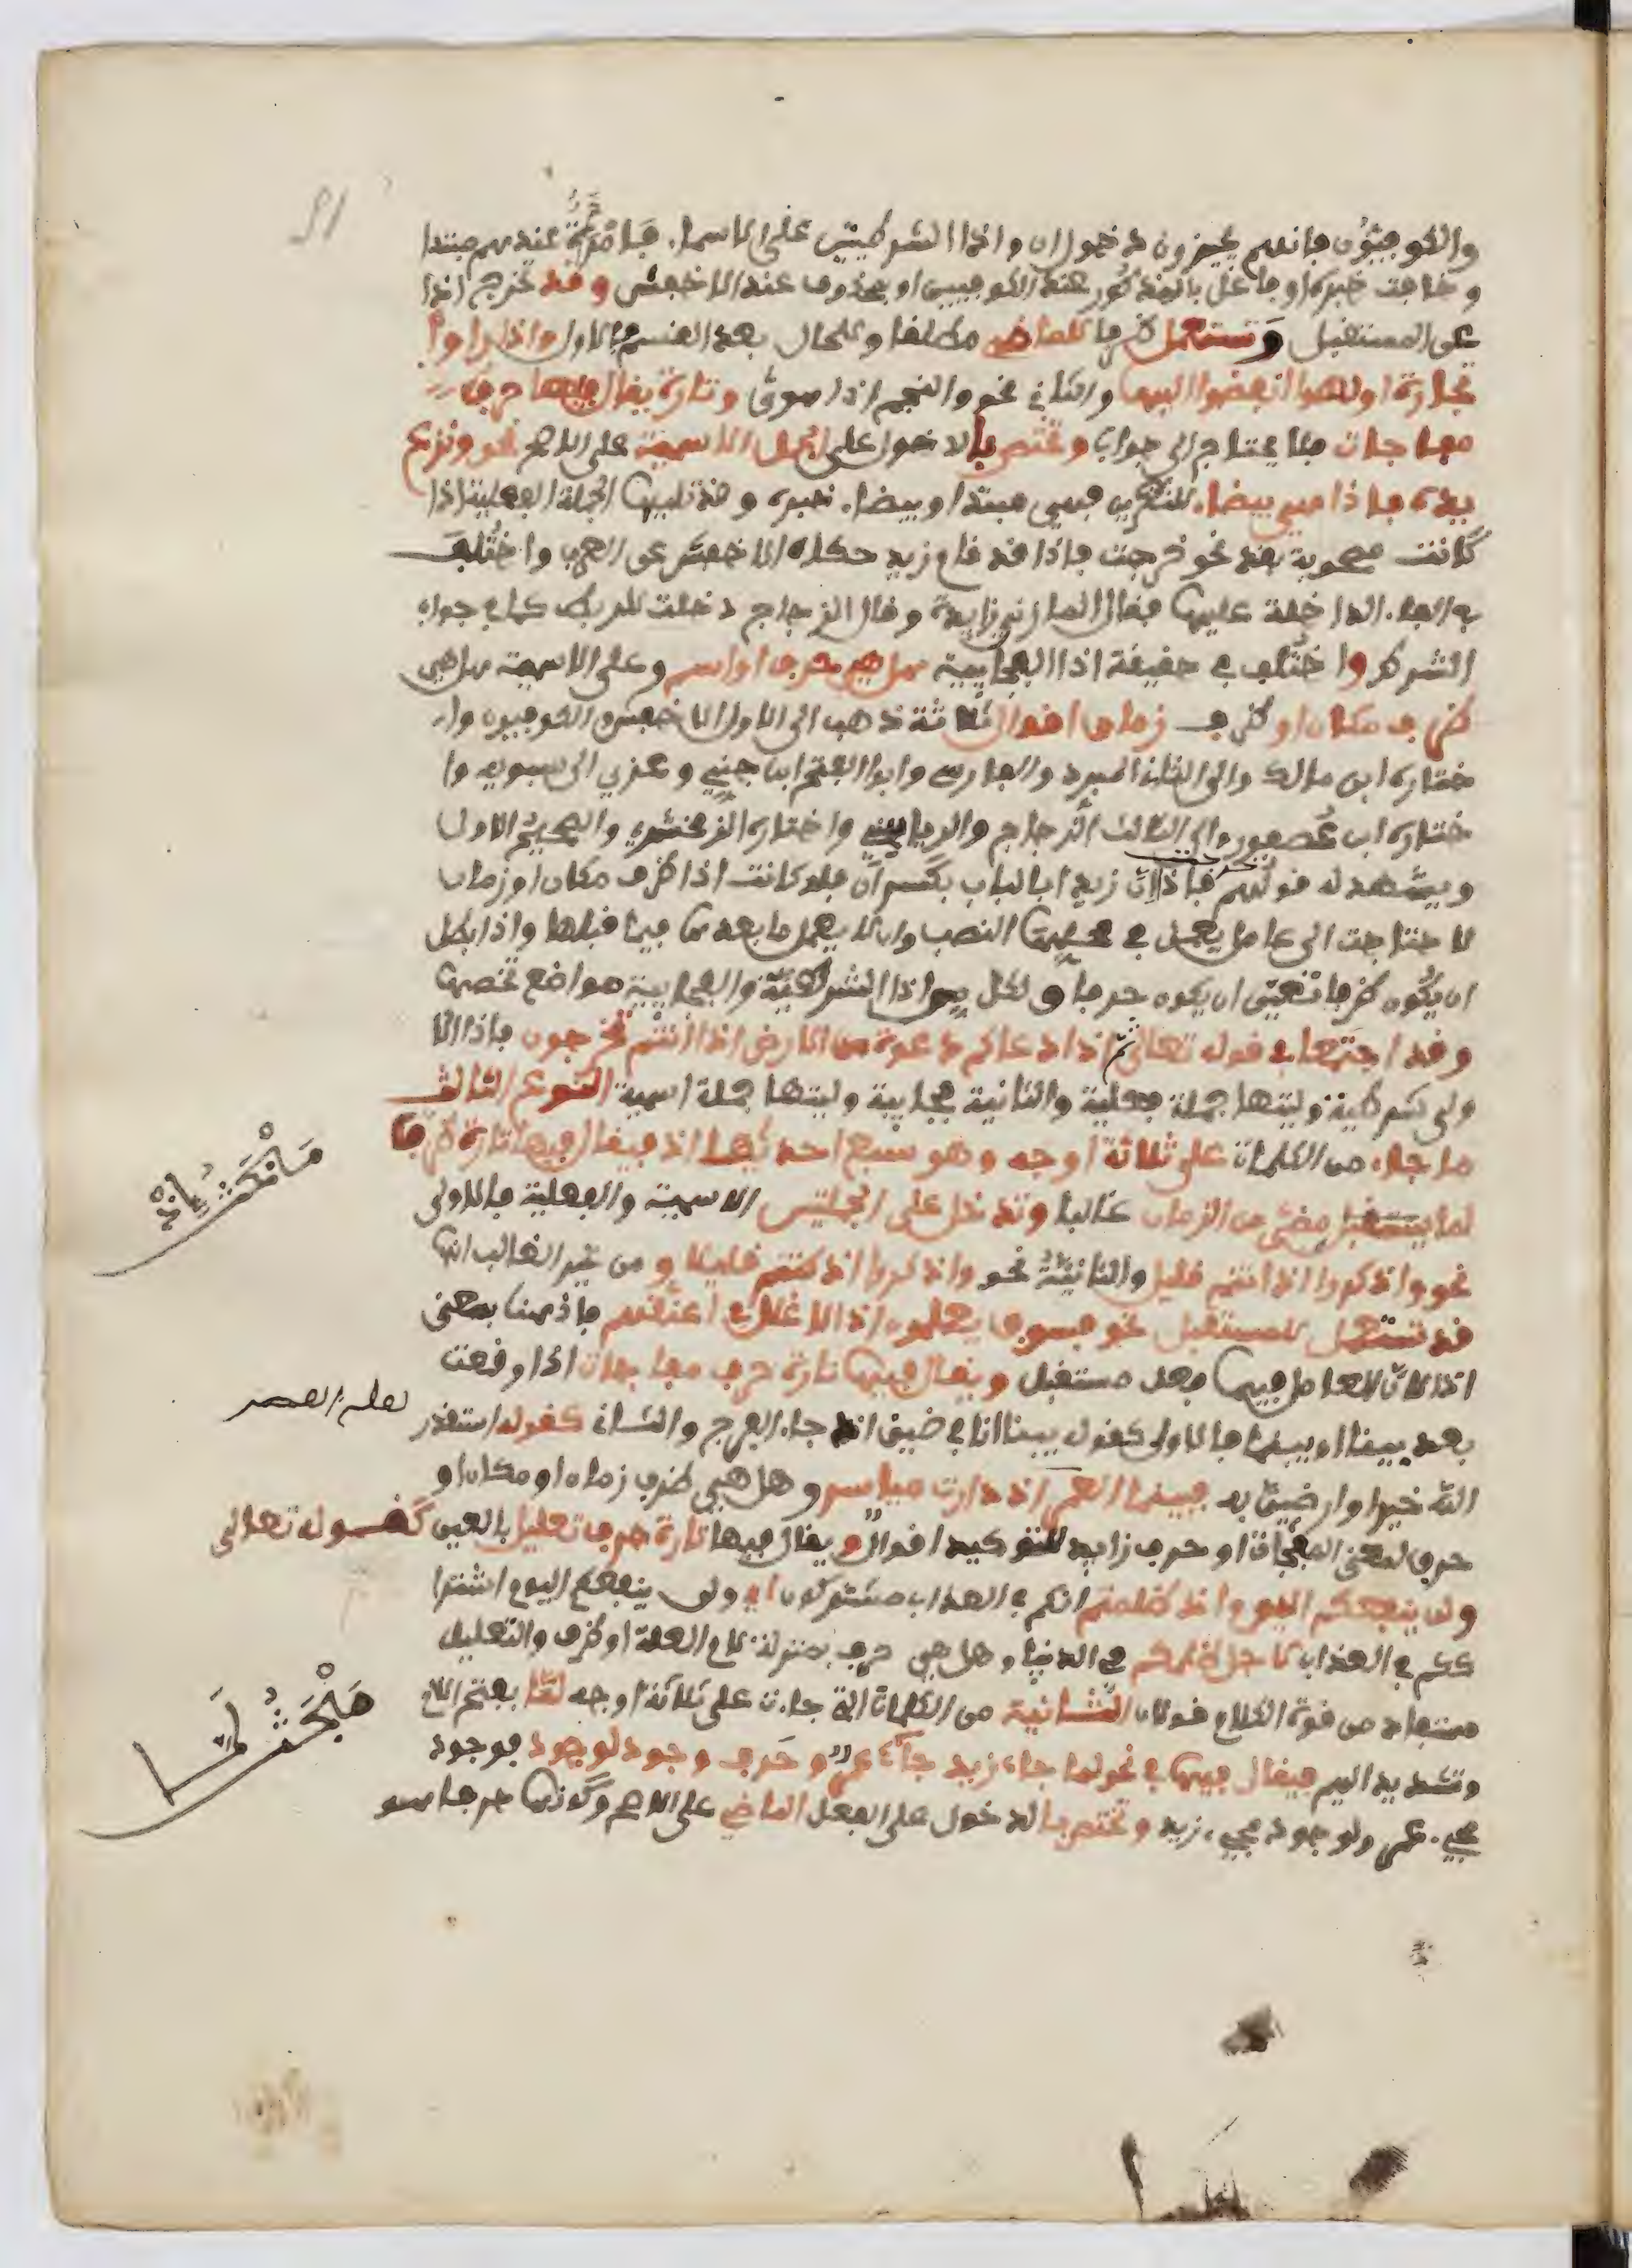 والكوفيون فانهم يجيزون دخول ان واذا الشرطيتين على الاسماء فامرأة عندهم مبتدا
وخافت خبره او فاعل بالمذكور عند الكوفيين او محذوف عند الاخفش وقد تخرج اذا
عن المستقبل وتستعمل ظرفا للماضي مطلقا وللحال بعد القسم فالاول واذا راوا
تجارة او لهوا انفضوا اليها والثاني نحو والنجم اذا هوى وتارة يقال فيها حرف
مفاجات فلا يحتاج الى جواب وتختص بالدخول على الجمل الاسمية على الاصح نحو ونزع
يده فاذا هي بيضاء للنظرين فهي مبتدا وبيضاء خبره وقد تليها الجملة الفعلية اذا
كانت مصحوبة بقد نحو خرجت فاذا قد قام زيد حكاه الاخفش عن العرب واختلف
في الفاء الداخلة عليها فقال المازني زايدة وقال الزجاج دخلت للربط كما في جواب
الشرط واختلف في حقيقة اذا الفجايية هل هي حرف او اسم وعلى الاسمية هل هي
ظرف مكان او ظرف زمان اقوال ثلاثة ذهب الى الاول الاخفش والكوفيون وا
ختاره ابن مالك والى الثاني المبرد والفارسي وابوا الفتح ابن جني وعزي الى سبويه وا
ختاره ابن عصفور والى الثالث الزجاج والرياشي واختاره الزمخشري والصحيح الاول
ويشهد له قولهم خرجت فاذا ان زيدا بالباب بكسر ان فلو كانت اذا ظرف مكان او زمان
لا حتاجت الى عامل يعمل في محلها النصب وان لا يعمل ما بعدها فيما قبلها واذا بطل
ان يكون ظرفا تعين ان يكون حرفا ولكل من اذا الشرطية والفجايية مواضع تخصها
وقد اجتمعا في قوله تعالى ثم اذا دعاكم دعوة من الارض اذا انتم تخرجون فاذا الا
ولى شرطية وليتها جملة فعلية والثانية فجايية وليتها جملة اسمية النوع الثالث
ما جاء من الكلمات على ثلاثة اوجه وهو سبع احدها اذ فيقال فيها تارة ظرفا
لما يستقبل مضى من الزمان غالبا وتدخل على الجملتين الاسمية والفعلية فالاولى
نحو واذكروا اذ انتم قليل والثانية نحو واذكروا اذ كنتم قليلا ومن غير الغالب انها
قد تستعمل للمستقبل نحو فسوف يعلمون اذ الاغلل في اعنقهم فاذ هنا بمعنى
اذا لان العامل فيها فعل مستقبل ويقال فيها تارة حرف مفاجات اذا وقعت
بعد بينا او بينما فالاول كقولك بينا انا في ضيق اذ جاء الفرج والثاني كقوله استقدر
الله خيرا وارضين به فبينما العسر اذ دارت مياسر وهل هي ظرف زمان او مكان او
حرف لمعنى المفجاة او حرف زايد للتوكيد اقوال ويقال فيها تارة حرف تعليل بالعين كقوله تعالى
ولن ينفعكم اليوم اذ ظلمتم انكم في العذاب مشتركون اي ولن ينفعكم اليوم اشترا
ككم في العذاب لاجل ظلمكم في الدنيا وهل هي حرف بمنزلة لام العلة او ظرف والتعليل
مستفاد من قوة الكلام قولان الثانية من الكلمات التي جاءت على ثلاثة اوجه لما بفتح اللام
وتشديد الميم فيقال فيها في نحو لما جاء زيد جاء عمرو حرف وجود لوجود فوجود
مجيء عمرو لوجود مجيء زيد وتختص بالدخول على الفعل الماضي على الاصح وكونها حرفا هو
مبحث لما